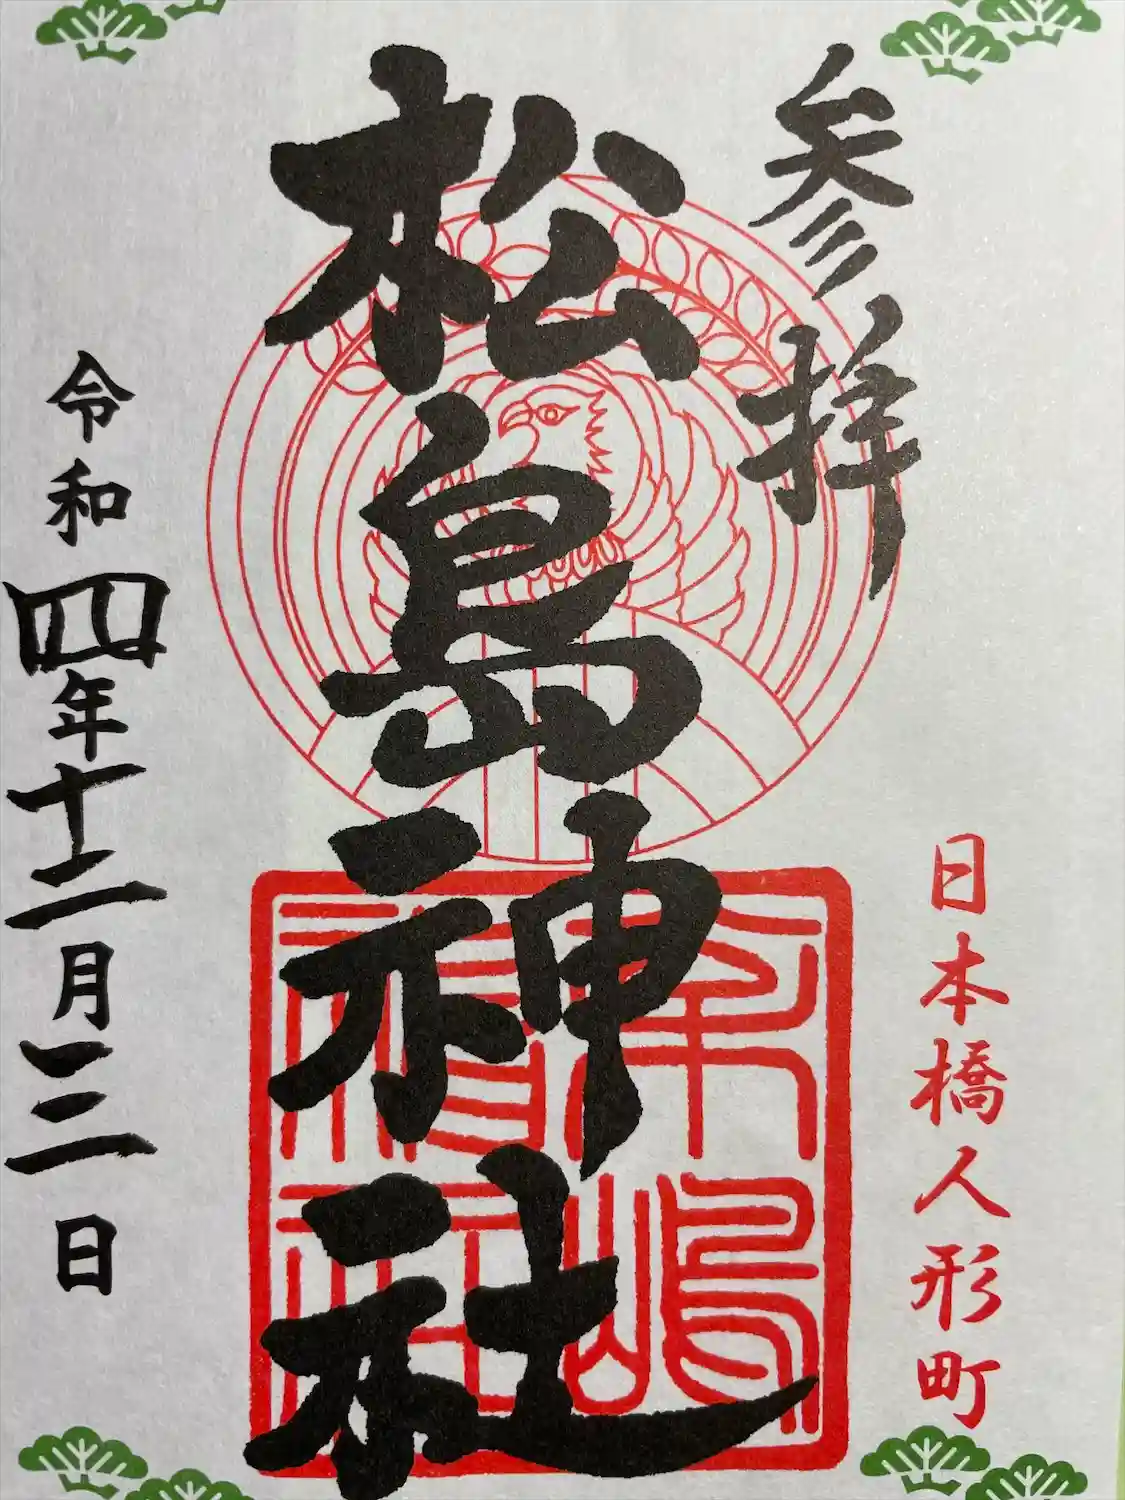 参拝
日本橋人形町
松島神社
令和四年十二月三日